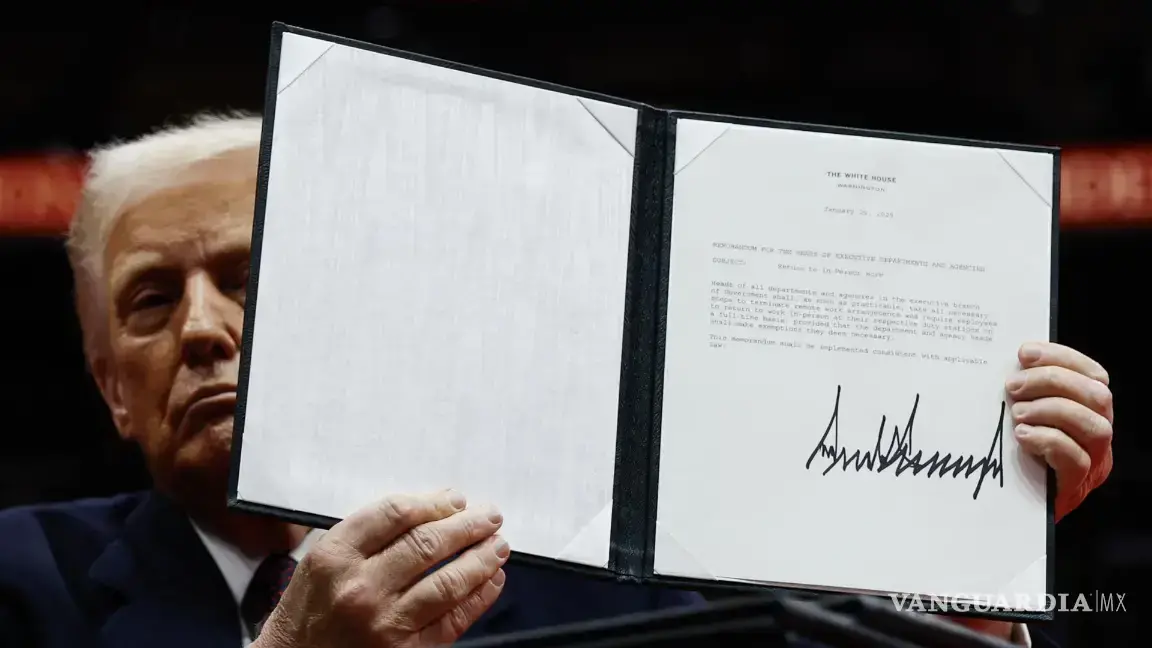 THE WHITE HOUSE
WASHINGTON
January 20, 2025
MEMORANDUM FOR THE HEADS OF EXECUTIVE DEPARTMENTS AND AGENCIES
SUBJECT: Return to In-Person Work
Heads of all departments and agencies in the executive branch
of Government shall, as soon as practicable, take all necessary
steps to terminate remote work arrangements and require employees
to return to work in-person at their respective duty stations on
a full-time basis, provided that the department and agency heads
shall make exemptions they deem necessary.
This memorandum shall be implemented consistent with applicable
law.
VANGUARDIA|MX